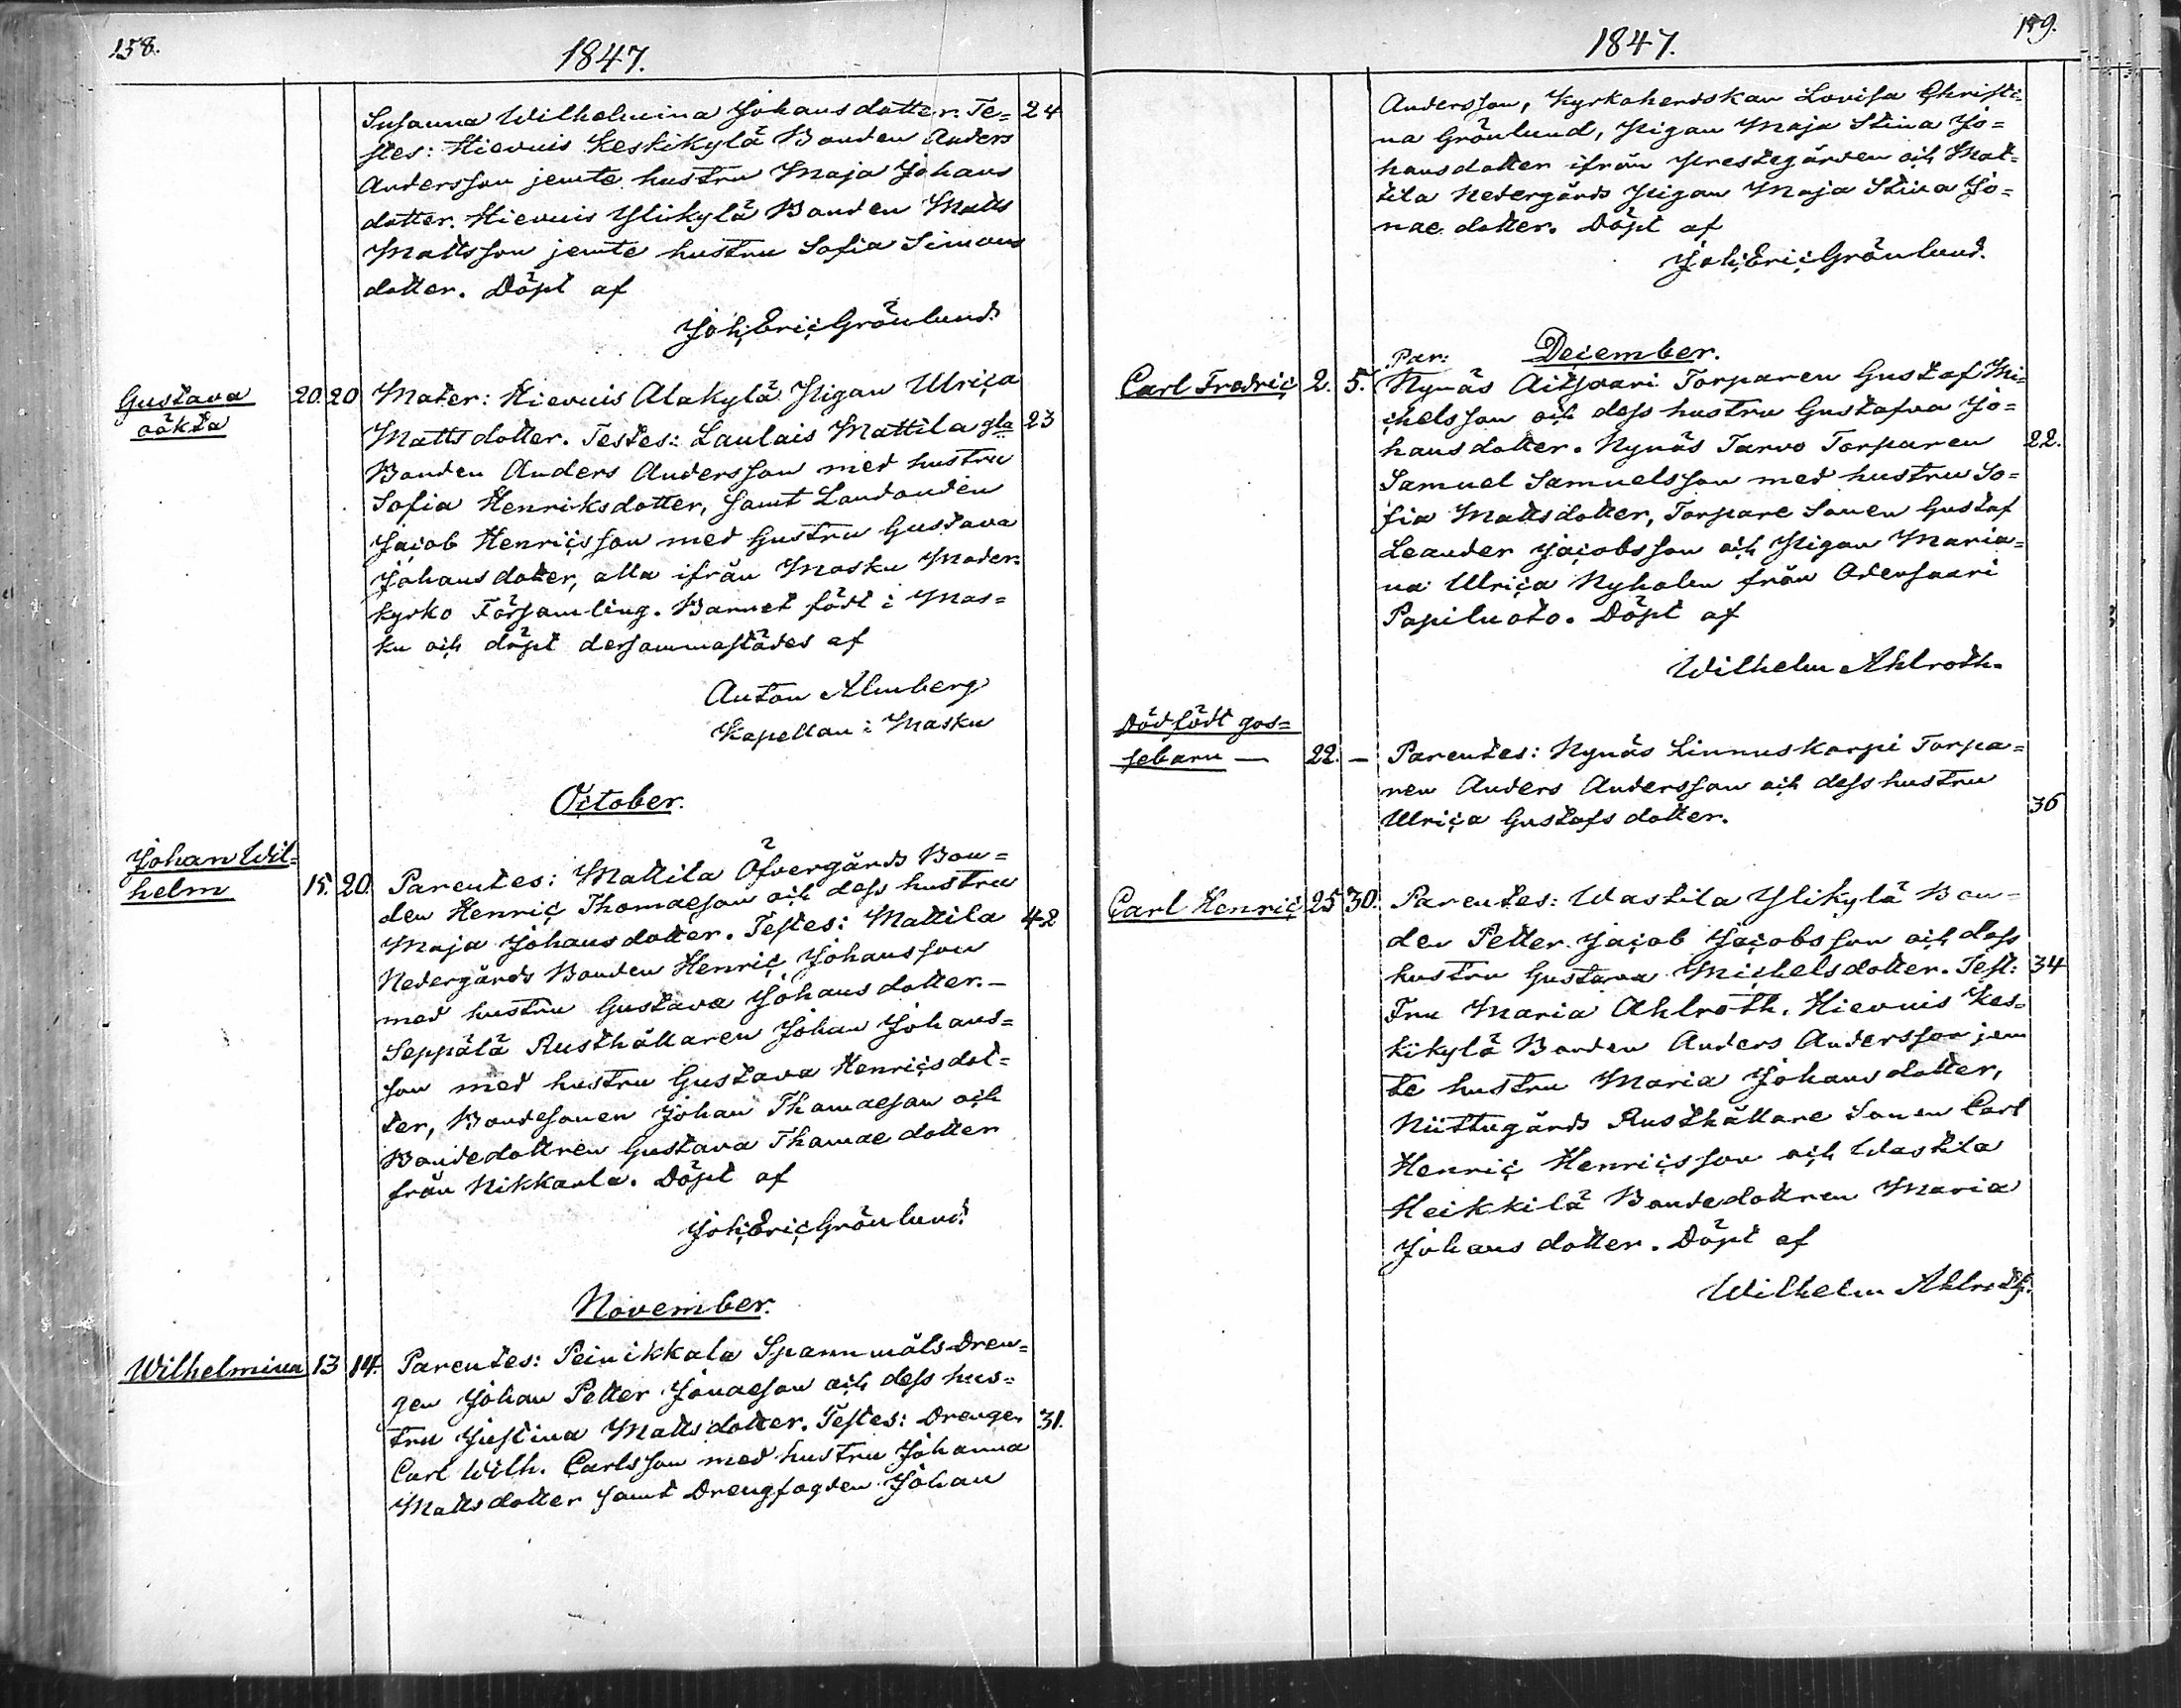 158.
1847.
Susanna Wilhelmina Johansdotter. Te= 24
stes: Hievuis Keskikylä Bonden Anders
Andersson jemte hustru Maja Johans
dotter. Hievuis Ylikylä Bonden Matts
Mattsson jemte hustru Sofia Simons
dotter. Döpt af
Joh. Eric Grönlund.
Gustava 20. 20 Mater: Hievuis Alakylä Pigan Ulrica
oäkta Mattsdotter. Testes: Laulais Mattila gla 23
Bonden Anders Andersson med hustru
Sofia Henriksdotter, samt Landbonden
Jacob Henricsson med Gustru Gustava
Johansdotter, alla ifrån Masku Moder=
kyrko Församling. Barnet födt i Mas=
ku och döpt dersammastädes af
Anton Almberg
Kapellan i Masku
October.
Johan Wil=
helm 15. 20. Parentes: Mattila Öfvergårds Bon=
den Henric Thomaeson och dess hustru
Maja Johansdotter. Testes: Mattila 42
Nedergårds Bonden Henric Johansson
med hustru Gustava Johansdotter.—
Seppälä Rusthållaren Johan Johans=
son med hustru Gustava Henricsdot=
ter, Bondesonen Johan Thomaeson och
Bondedottren Gustava Thomaedotter
från Nikkarla. Döpt af
Joh. Eric Grönlund.
November.
Wilhelmina 13 14. Parentes: Peinikkala Spannmåls Dren=
gen Johan Petter Jonaeson och dess hus=
tru Justina Mattsdotter. Testes: Drengen 31.
Carl Wilh. Carlsson med hustru Johanna
Mattsdotter samt Drengfogden Johan
159.
1847.
Andersson, Kyrkoherdskan Lovisa Christi=
na Grönlund, Pigan Maja Stina Jo=
hansdotter ifrån Prestegården och Mat=
tila Nedergårds Pigan Maja Stina Jo=
nae dotter. Döpt af
Joh. Eric Grönlund.
December.
Par:
Carl Fredric 2. 5. Nynäs Aitsaari Torparen Gustaf Mi=
chelsson och dess hustru Gustafva Jo=
hansdotter. Nynäs Tarvo Torparen 22.
Samuel Samuelsson med hustru So=
fia Mattsdotter, Torpare Sonen Gustaf
Leander Jacobsson och Pigan Maria=
na Ulrica Nyholm från Odensaari
Papiluoto. Döpt af
Wilhelm Ahlroth.
Dödfödt gos=
sebarn — 22. — Parentes: Nynäs Linnuskorpi Torpa=
ren Anders Andersson och dess hustru
Ulrica Gustafsdotter. 36
Carl Henric 25 30. Parentes: Wastila Ylikylä Bon=
den Petter Jacob Jacobsson och dess
hustru Gustava Michelsdotter. Test: 34
Fru Maria Ahlroth. Hievuis Kes=
kikylä Bonden Anders Andersson jem
te hustru Maria Johansdotter,
Niittugårds Rusthållare Sonen Carl
Henric Henricsson och Wastila
Heikkilä Bondedottren Maria
Johansdotter. Döpt af
Wilhelm Ahlroth.